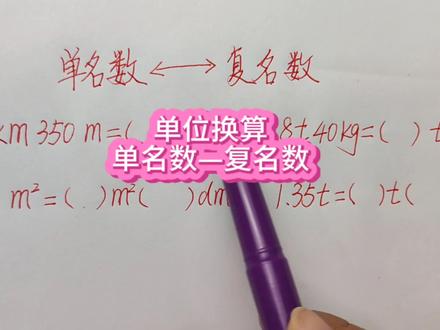 单名数 ←→ 复名数
km 350 m=( 8t 40kg=( ) t
单位换算
单名数—复名数
m²=( ) m²( ) dm 1.35t=( )t(